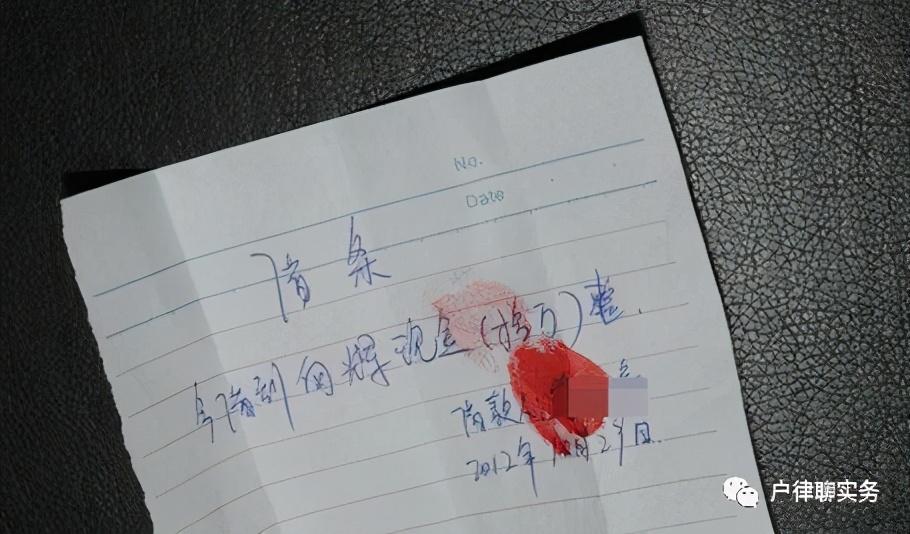 No.
Date
借条
今借到向辉现金(拾万)整.
借款人
2012年10月29日.
户律聊实务